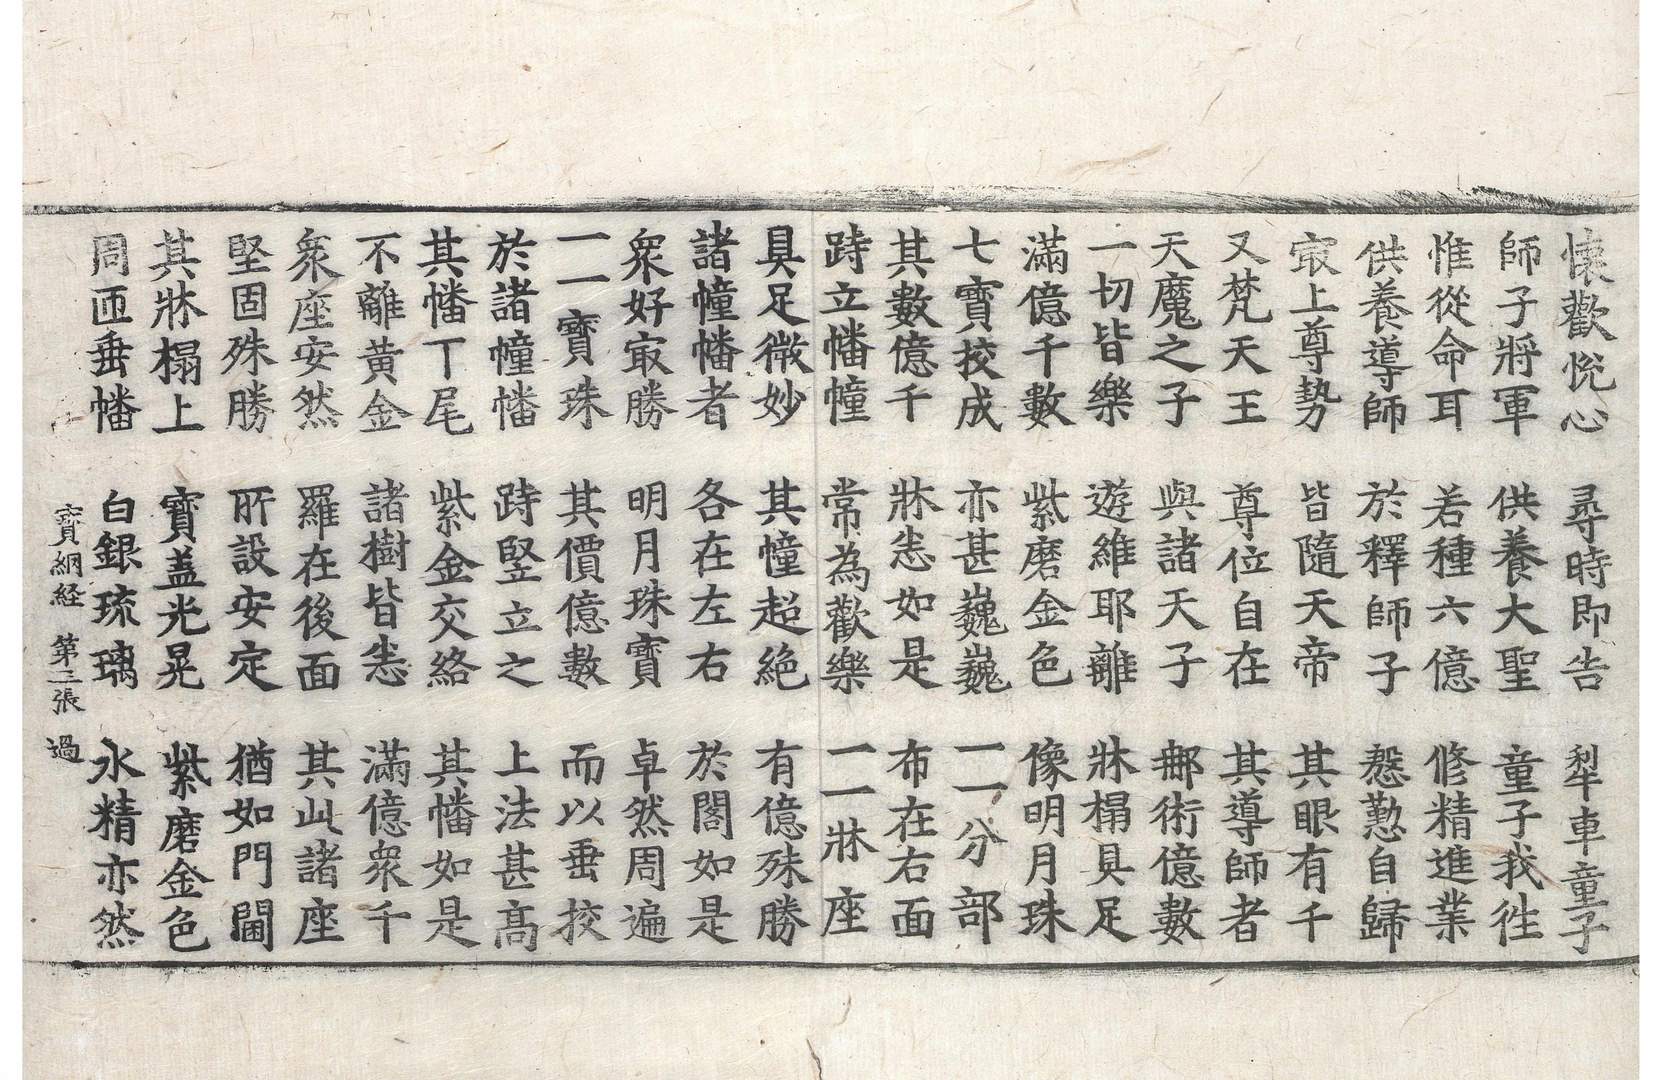 懐歡悅心 尋時即告 犁車童子
師子將軍 供養大聖 童子我徃
惟從命耳 若種六億 修精進業
供養導師 於釋師子 慇懃自歸
㝡上尊勢 皆隨天帝 其眼有千
又梵天王 尊位自在 其導師者
天魔之子 與諸天子 邮術億數
一切皆樂 遊維耶離 牀榻具足
滿億千數 紫磨金色 像明月珠
七寶挍成 亦甚巍巍 一一分部
其數億千 牀恙如是 布在右面
跱立幡幢 常為歡樂 一一牀座
具足微妙 其幢超絶 有億殊勝
諸幢幡者 各在左右 於閣如是
衆好㝡勝 明月珠寶 卓然周遍
一一寶珠 其價億數 而以垂挍
於諸幢幡 跱竪立之 上法甚髙
其幡丅尾 紫金交絡 其幡如是
不離黃金 諸樹皆恙 滿億衆千
衆座安然 羅在後面 其此諸座
堅固殊勝 所設安定 猶如門閫
其牀榻上 寶盖光晃 紫磨金色
周匝垂幡 白銀琉璃 水精亦然
寶網経 第三張 過